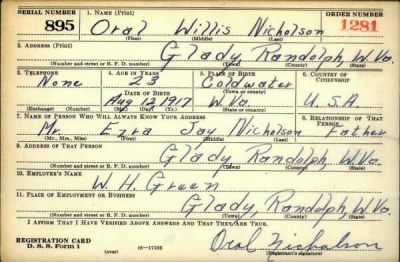 SERIAL NUMBER 1. NAME (Print) ORDER NUMBER
895 Oral Willis Nicholson 1281
(First) (Middle) (Last)
2. ADDRESS (Print)
Glady, Randolph, W. Va.
(Number and street or R. F. D. number) (Town) (County) (State)
3. TELEPHONE 4. AGE IN YEARS 5. PLACE OF BIRTH 6. COUNTRY OF CITIZENSHIP
None 23 Coldwater
DATE OF BIRTH (Town or county)
Aug 12, 1917 W. Va. U. S. A.
(Exchange) (Number) (Mo.) (Day) (Yr.) (State or country)
7. NAME OF PERSON WHO WILL ALWAYS KNOW YOUR ADDRESS 8. RELATIONSHIP OF THAT PERSON
Mr. Ezra Jay Nicholson Father
(Mr., Mrs., Miss) (First) (Middle) (Last)
9. ADDRESS OF THAT PERSON
Glady, Randolph, W. Va.
(Number and street or R. F. D. number) (Town) (County) (State)
10. EMPLOYER'S NAME
W. H. Green
11. PLACE OF EMPLOYMENT OR BUSINESS
Glady, Randolph, W. Va.
(Number and street or R. F. D. number) (Town) (County) (State)
I AFFIRM THAT I HAVE VERIFIED ABOVE ANSWERS AND THAT THEY ARE TRUE.
REGISTRATION CARD
D. S. S. Form 1 (over) 16—17105 Oral Nicholson
(Registrant's signature)